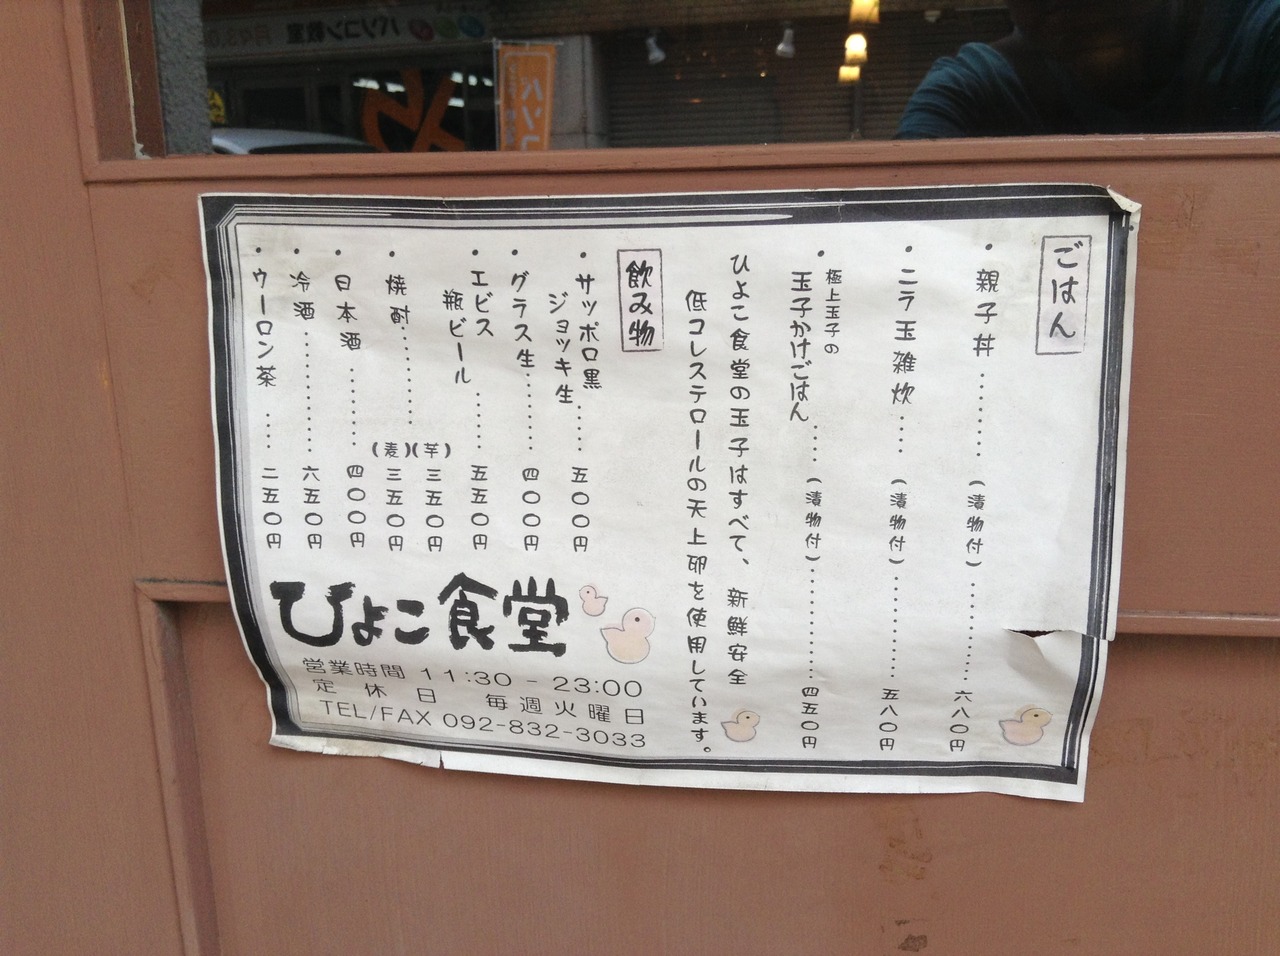 ごはん
・親子丼………(漬物付)…………六八〇円
・ニラ玉雑炊……(漬物付)…………五八〇円
・極上玉子の
玉子かけごはん……(漬物付)…………四五〇円
ひよこ食堂の玉子はすべて、新鮮安全
低コレステロールの天上卵を使用しています。
飲み物
・サッポロ黒
ジョッキ生……五〇〇円
・グラス生………四〇〇円
・エビス
瓶ビール……五五〇円
・焼酎…………(芋)三五〇円
(麦)三五〇円
・日本酒………四〇〇円
・冷酒…………六五〇円
・ウーロン茶……二五〇円
ひよこ食堂
営業時間 11:30 - 23:00
定休日 毎週火曜日
TEL/FAX 092-832-3033
パソコン教室